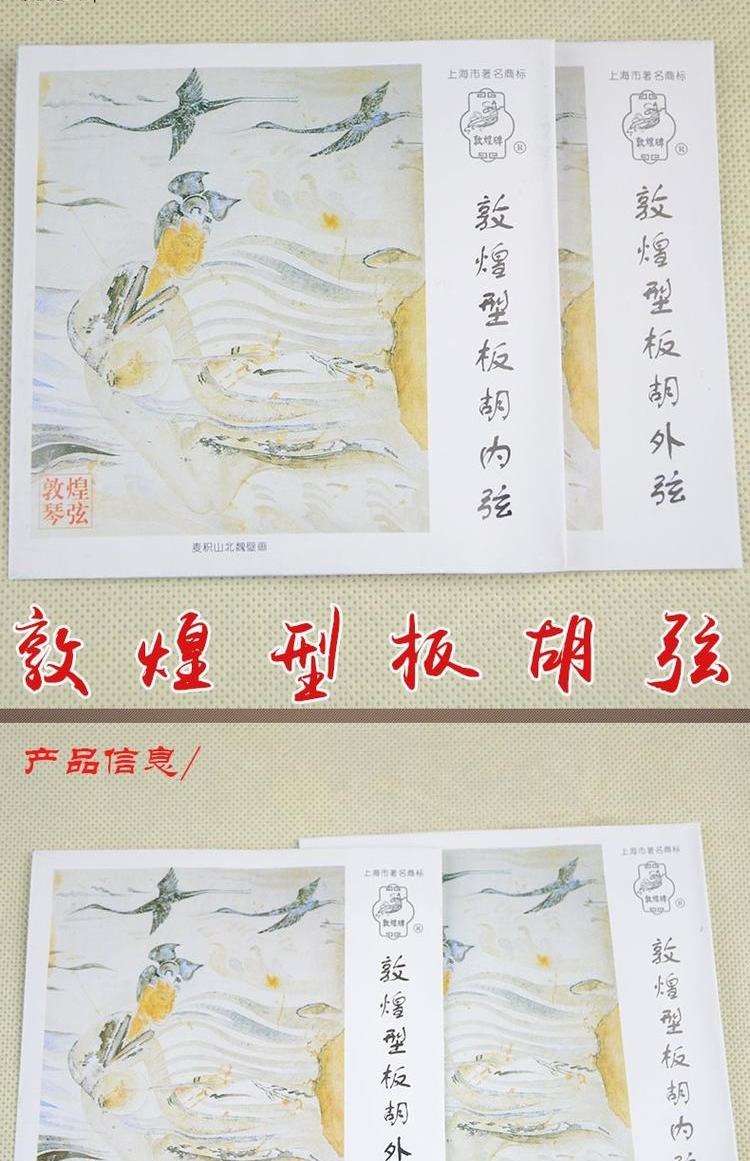 上海市著名商标
敦煌牌
®
敦煌型板胡内弦
敦煌琴弦
麦积山北魏壁画
上海市著名商标
敦煌牌
®
敦煌型板胡外弦
敦煌型板胡弦
产品信息/
上海市著名商标
敦煌牌
®
敦煌型板胡外
上海市著名商标
敦煌牌
®
敦煌型板胡内弦